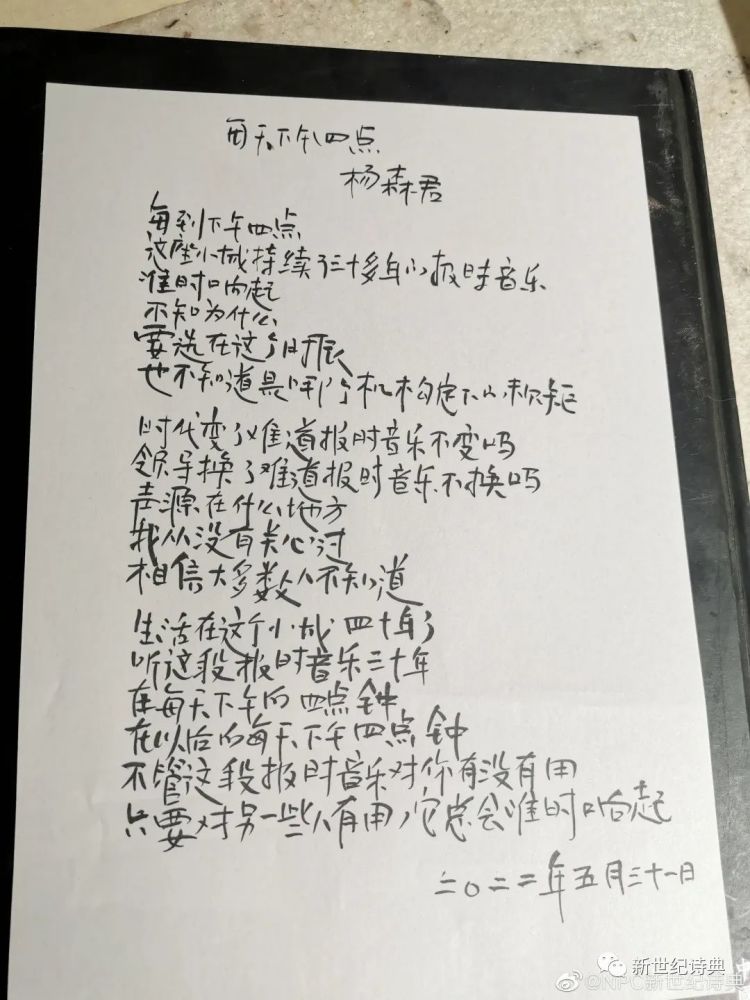 每天下午四点
杨森君
每到下午四点
这座小城持续了三十多年的报时音乐
准时响起
不知为什么
要选在这个时辰
也不知道是哪个机构定下的规矩
时代变了难道报时音乐不变吗
领导换了难道报时音乐不换吗
声源在什么地方
我从没有关心过
相信大多数人不知道
生活在这个小城四十年了
听这段报时音乐三十年
在每天下午的四点钟
在以后的每天下午四点钟
不管这段报时音乐对你有没有用
只要对另一些人有用,它总会准时响起
二〇二二年五月三十一日
新世纪诗典
@NPC新世纪诗典